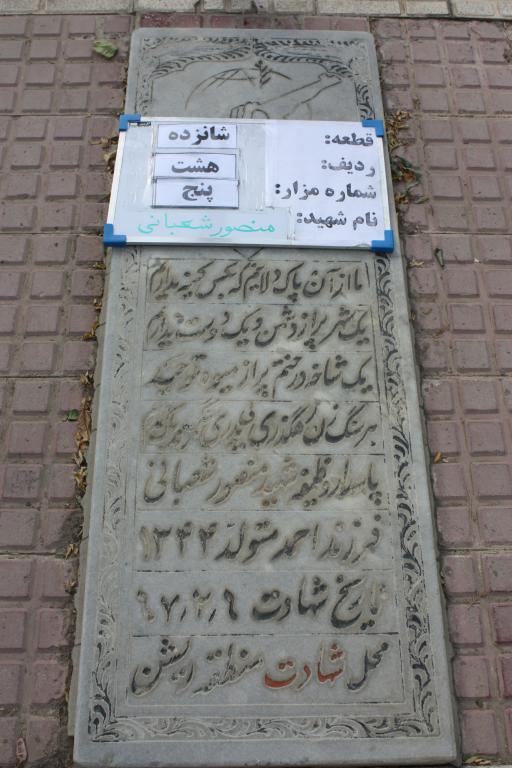 قطعه: شانزده
ردیف: هشت
شماره مزار: پنج
نام شهید: منصور شعبانی
ما از آن پاک دلانیم که ز کس کینه نداریم
یک شهر پر از دشمن و یک دوست نداریم
یک شاخه درختیم پر از میوه توحید
هر سنگ زن رهگذری
پاسدار وظیفه شهید منصور شعبانی
فرزند احمد متولد ۱۳۴۴
تاریخ شهادت ۶۷٫۲٫۶
محل شهادت منطقه